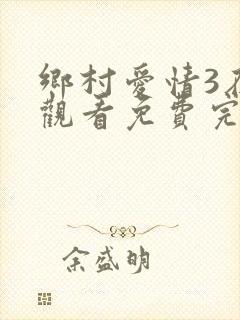 鄉村愛情3
觀看免費完
余盛明